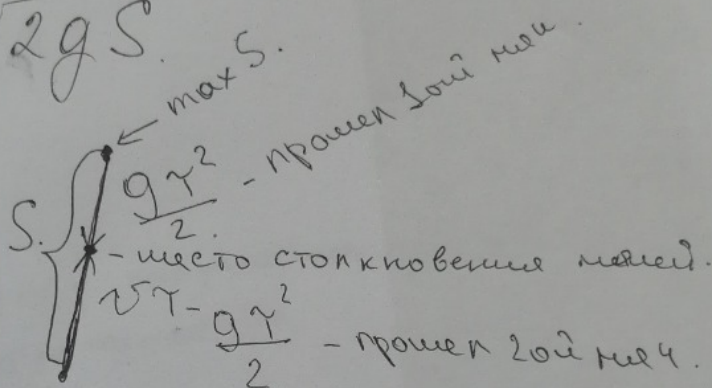 √2gS.
max S.
gτ²/2. - прошел 1ой мяч.
S.
- место столкновения мячей.
vτ - gτ²/2 - прошел 2ой мяч.